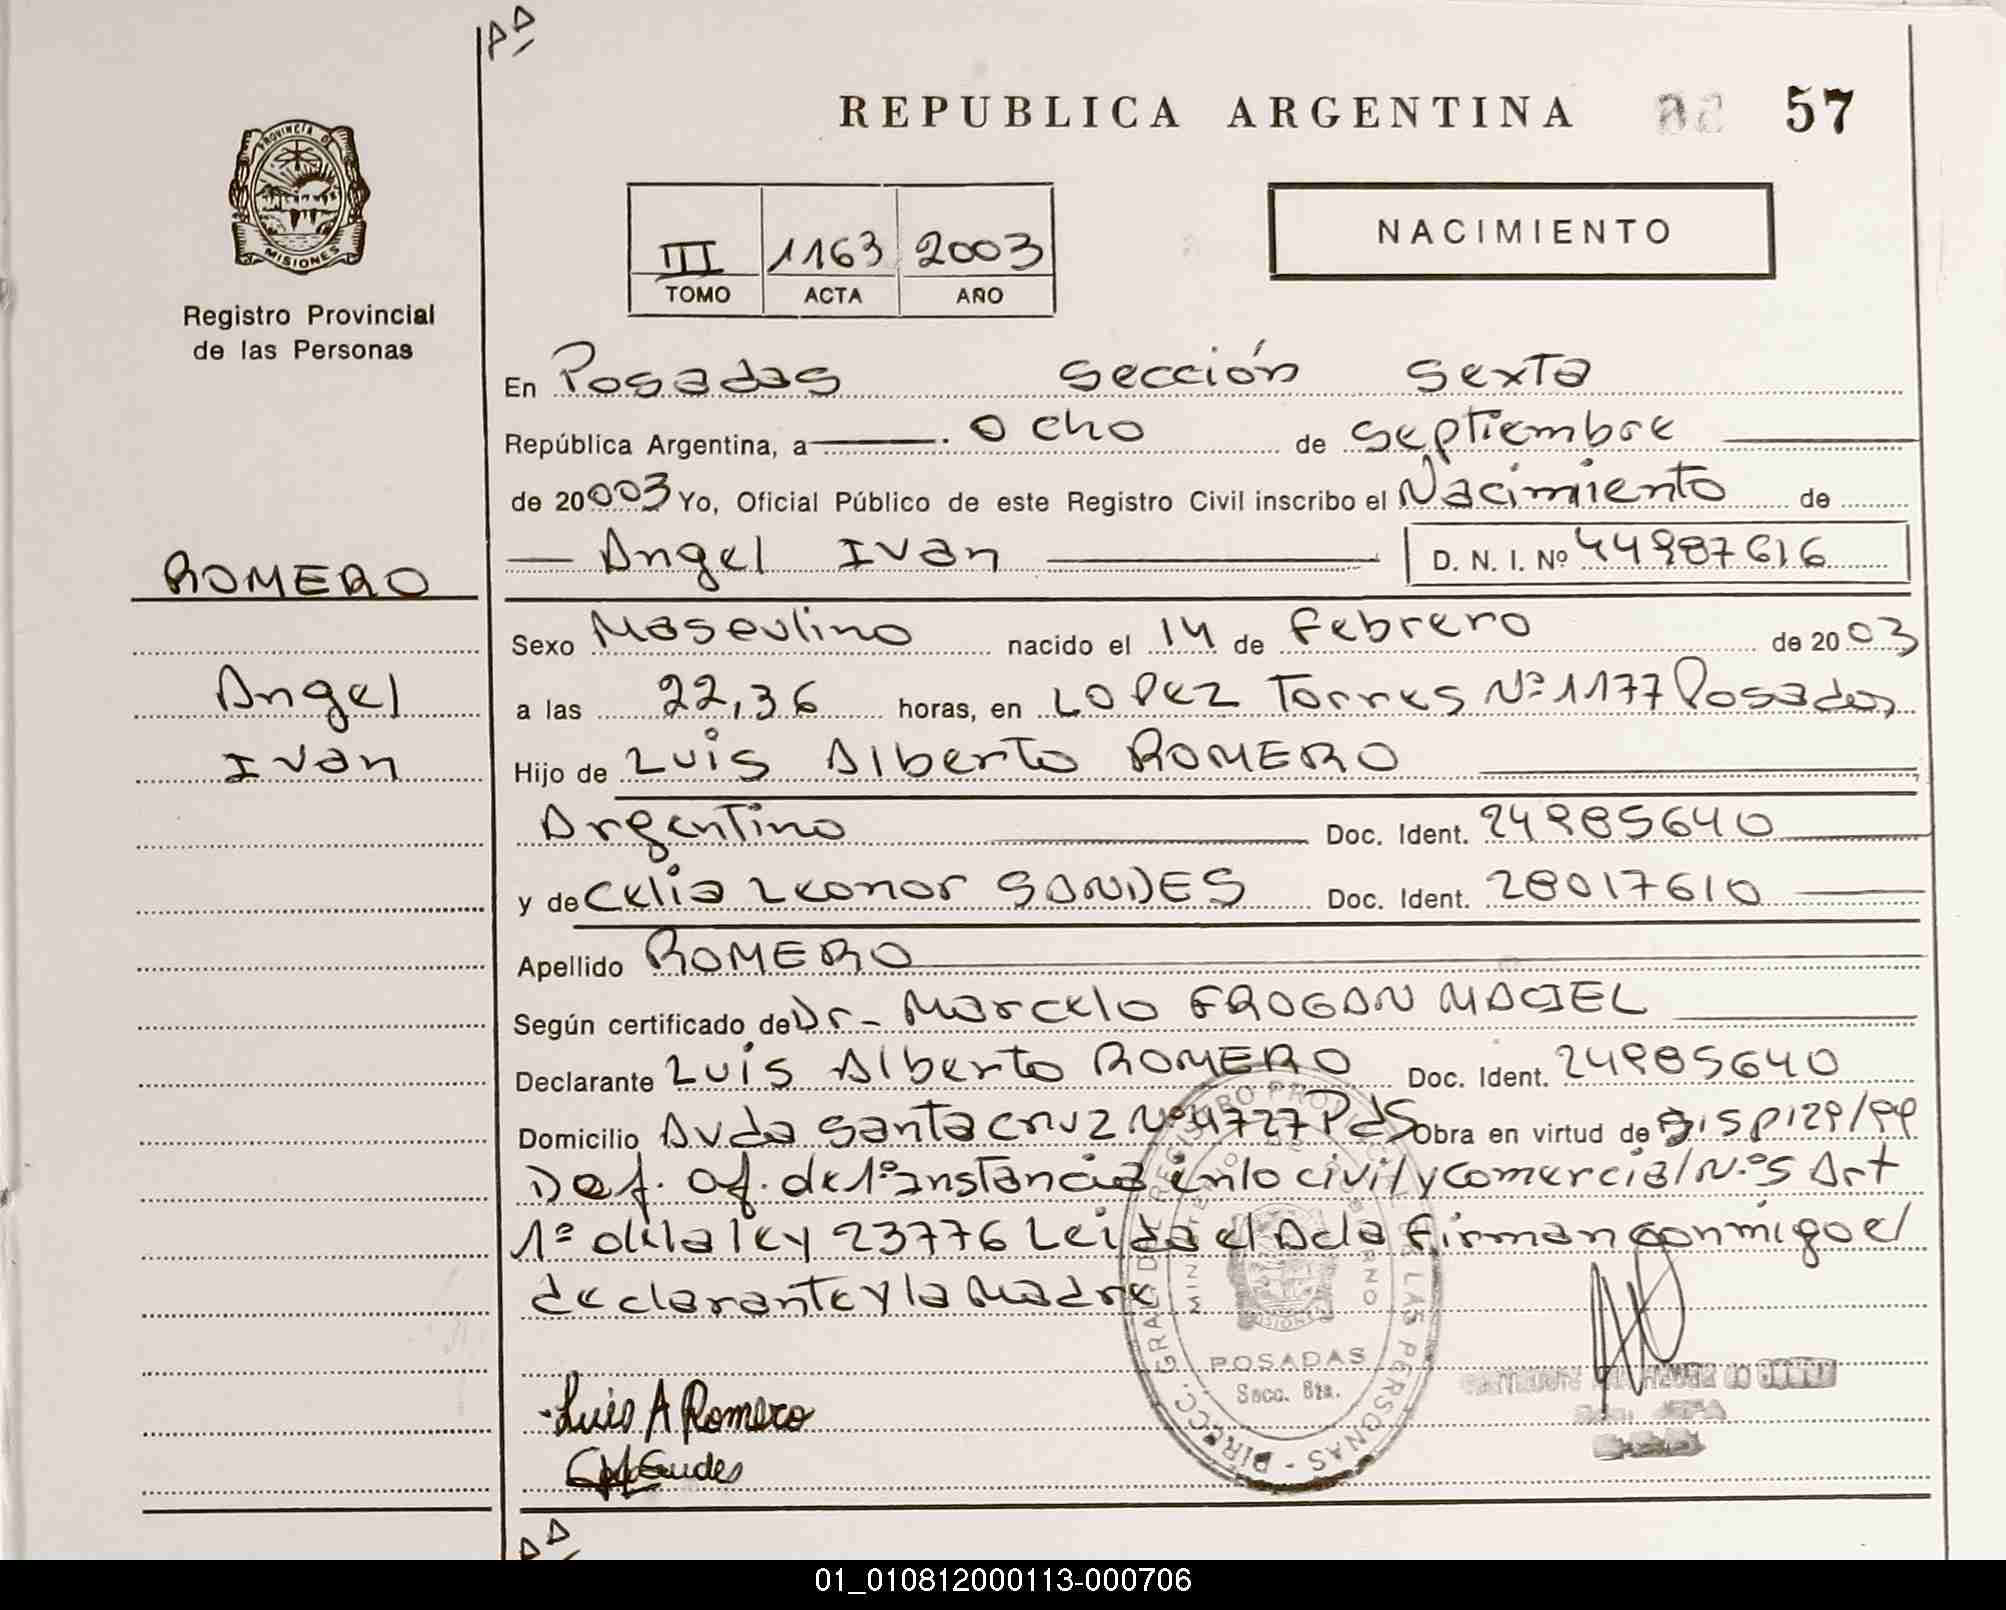 REPUBLICA ARGENTINA 57
PROVINCIA DE
MISIONES
Registro Provincial
de las Personas
III 1163 2003
TOMO ACTA AÑO
NACIMIENTO
En Posadas Sección Sexta
República Argentina, a Ocho de Septiembre
de 20 003 Yo, Oficial Público de este Registro Civil inscribo el Nacimiento de
Angel Ivan D. N. I. Nº 44987616
ROMERO
Angel
Ivan
Sexo Masculino nacido el 14 de Febrero de 20 03
a las 22,36 horas, en Lopez Torres Nº 1177 Posadas
Hijo de Luis Alberto ROMERO
Argentino Doc. Ident. 24985640
y de Celia Leonor SANDES Doc. Ident. 28017610
Apellido ROMERO
Según certificado de Dr. Marcelo FROGAN MACIEL
Declarante Luis Alberto ROMERO Doc. Ident. 24985640
Domicilio Avda Santa Cruz Nº 4727 Pdas Obra en virtud de Disp 129/99
Def. Of. de 1º Instancia en lo civil y comercial Nº 5 Art
1º de la ley 23776 Leida el Acta Firman conmigo el
declarante y la Madre
Luis A Romero
POSADAS
Secc. 6ta.
MISIONES
01_010812000113-000706